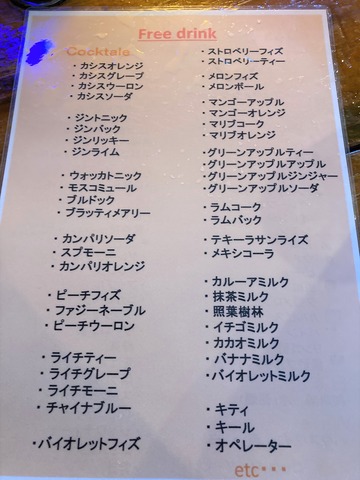 Free drink
Cocktails
・カシスオレンジ
・カシスグレープ
・カシスウーロン
・カシスソーダ
・ジントニック
・ジンバック
・ジンリッキー
・ジンライム
・ウォッカトニック
・モスコミュール
・ブルドック
・ブラッティメアリー
・カンパリソーダ
・スプモーニ
・カンパリオレンジ
・ピーチフィズ
・ファジーネーブル
・ピーチウーロン
・ライチティー
・ライチグレープ
・ライチモーニ
・チャイナブルー
・バイオレットフィズ
・ストロベリーフィズ
・ストロベリーティー
・メロンフィズ
・メロンボール
・マンゴーアップル
・マンゴーオレンジ
・マリブコーク
・マリブオレンジ
・グリーンアップルティー
・グリーンアップルアップル
・グリーンアップルジンジャー
・グリーンアップルソーダ
・ラムコーク
・ラムバック
・テキーラサンライズ
・メキシコーラ
・カルーアミルク
・抹茶ミルク
・照葉樹林
・イチゴミルク
・カカオミルク
・バナナミルク
・バイオレットミルク
・キティ
・キール
・オペレーター
etc・・・